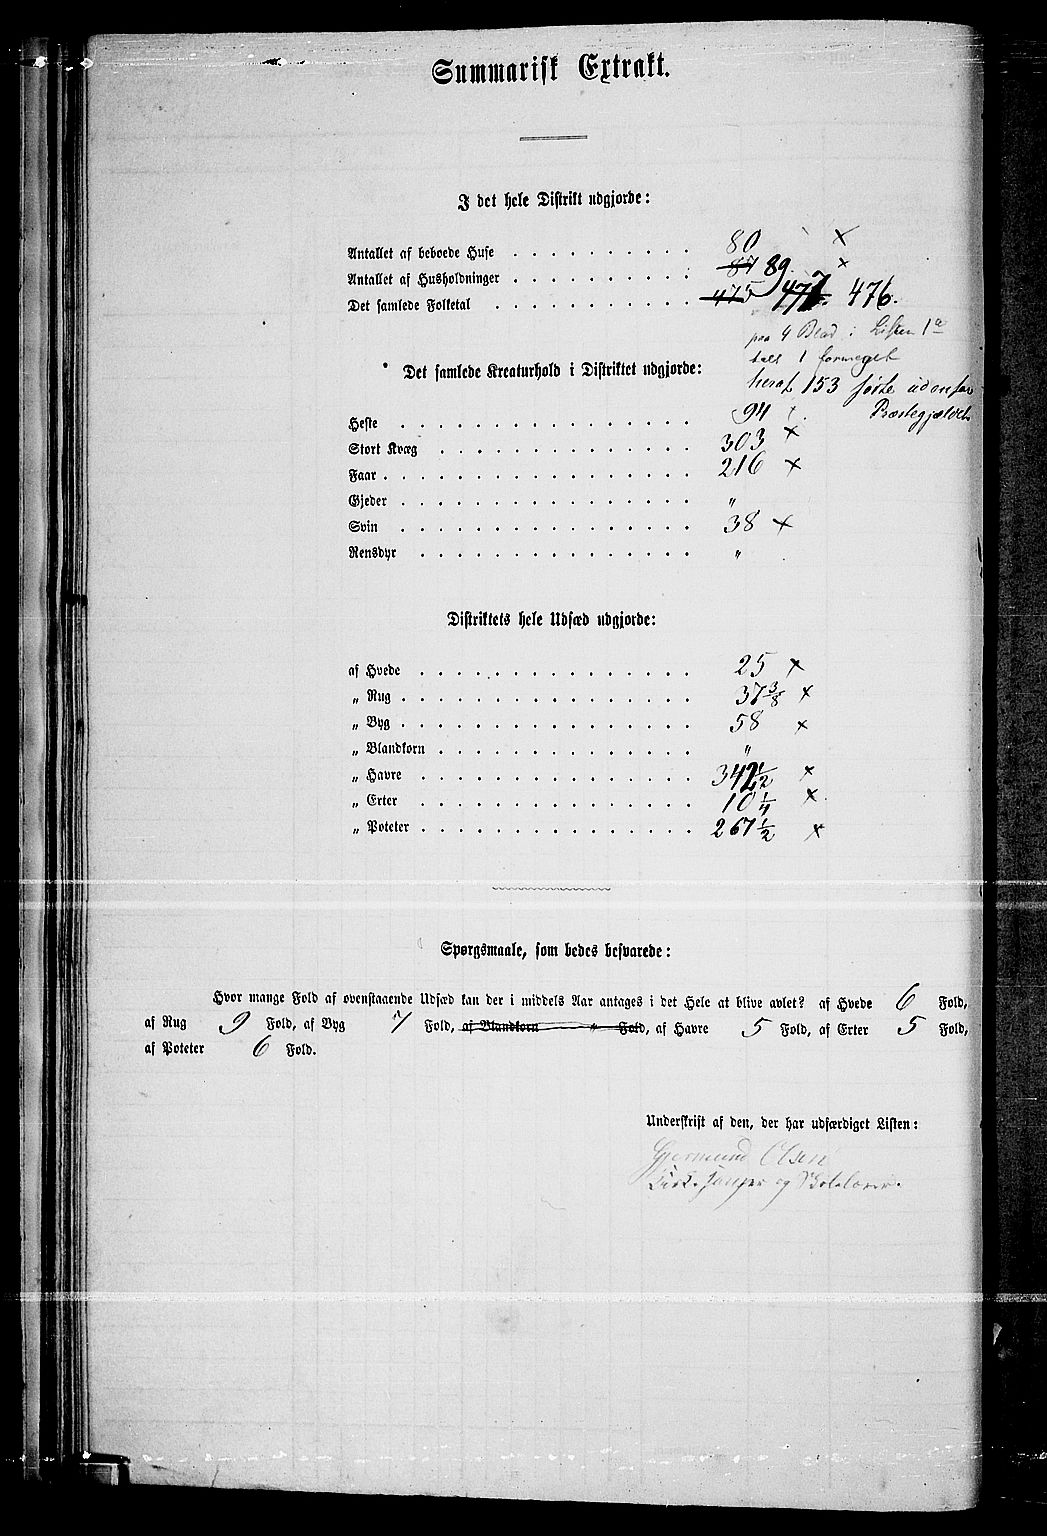 Summarisk Extrakt.
I det hele Distrikt udgjorde:
Antallet af beboede Huse . . . . . . . . . . 80 ×
Antallet af Husholdninger . . . . . . . . . . 87 89. ×
Det samlede Folketal . . . . . . . . . . . . 475 477. 476.
paa 4 Blad i Listen 1
talt 1 formeget
Det samlede Kreaturhold i Distriktet udgjorde:
heraf 153 førte udenfor
Præstegjældet
Heste . . . . . . . . . . . . . . . . 94
Stort Kvæg . . . . . . . . . . . . . . 303 ×
Faar . . . . . . . . . . . . . . . . . 216 ×
Gjeder . . . . . . . . . . . . . . . . "
Svin . . . . . . . . . . . . . . . . 38 ×
Rensdyr . . . . . . . . . . . . . . . "
Distriktets hele Udsæd udgjorde:
af Hvede . . . . . . . . . . . . . . . 25 ×
„ Rug . . . . . . . . . . . . . . . . 37 3/8 ×
„ Byg . . . . . . . . . . . . . . . . 58 ×
„ Blandkorn . . . . . . . . . . . . . . "
„ Havre . . . . . . . . . . . . . . . 342 1/2 ×
„ Erter . . . . . . . . . . . . . . . 10 1/4 ×
„ Poteter . . . . . . . . . . . . . . . 267 1/2 ×
Spørgsmaale, som bedes besvarede:
Hvor mange Fold af ovenstaaende Udsæd kan der i middels Aar antages i det Hele at blive avlet? af Hvede 6 Fold,
af Rug 9 Fold, af Byg 7 Fold, af Blandkorn " Fold, af Havre 5 Fold, af Erter 5 Fold,
af Poteter 6 Fold.
Underskrift af den, der har udfærdiget Listen:
Gjermund Olsen
Kirkesanger og Skolelærer.